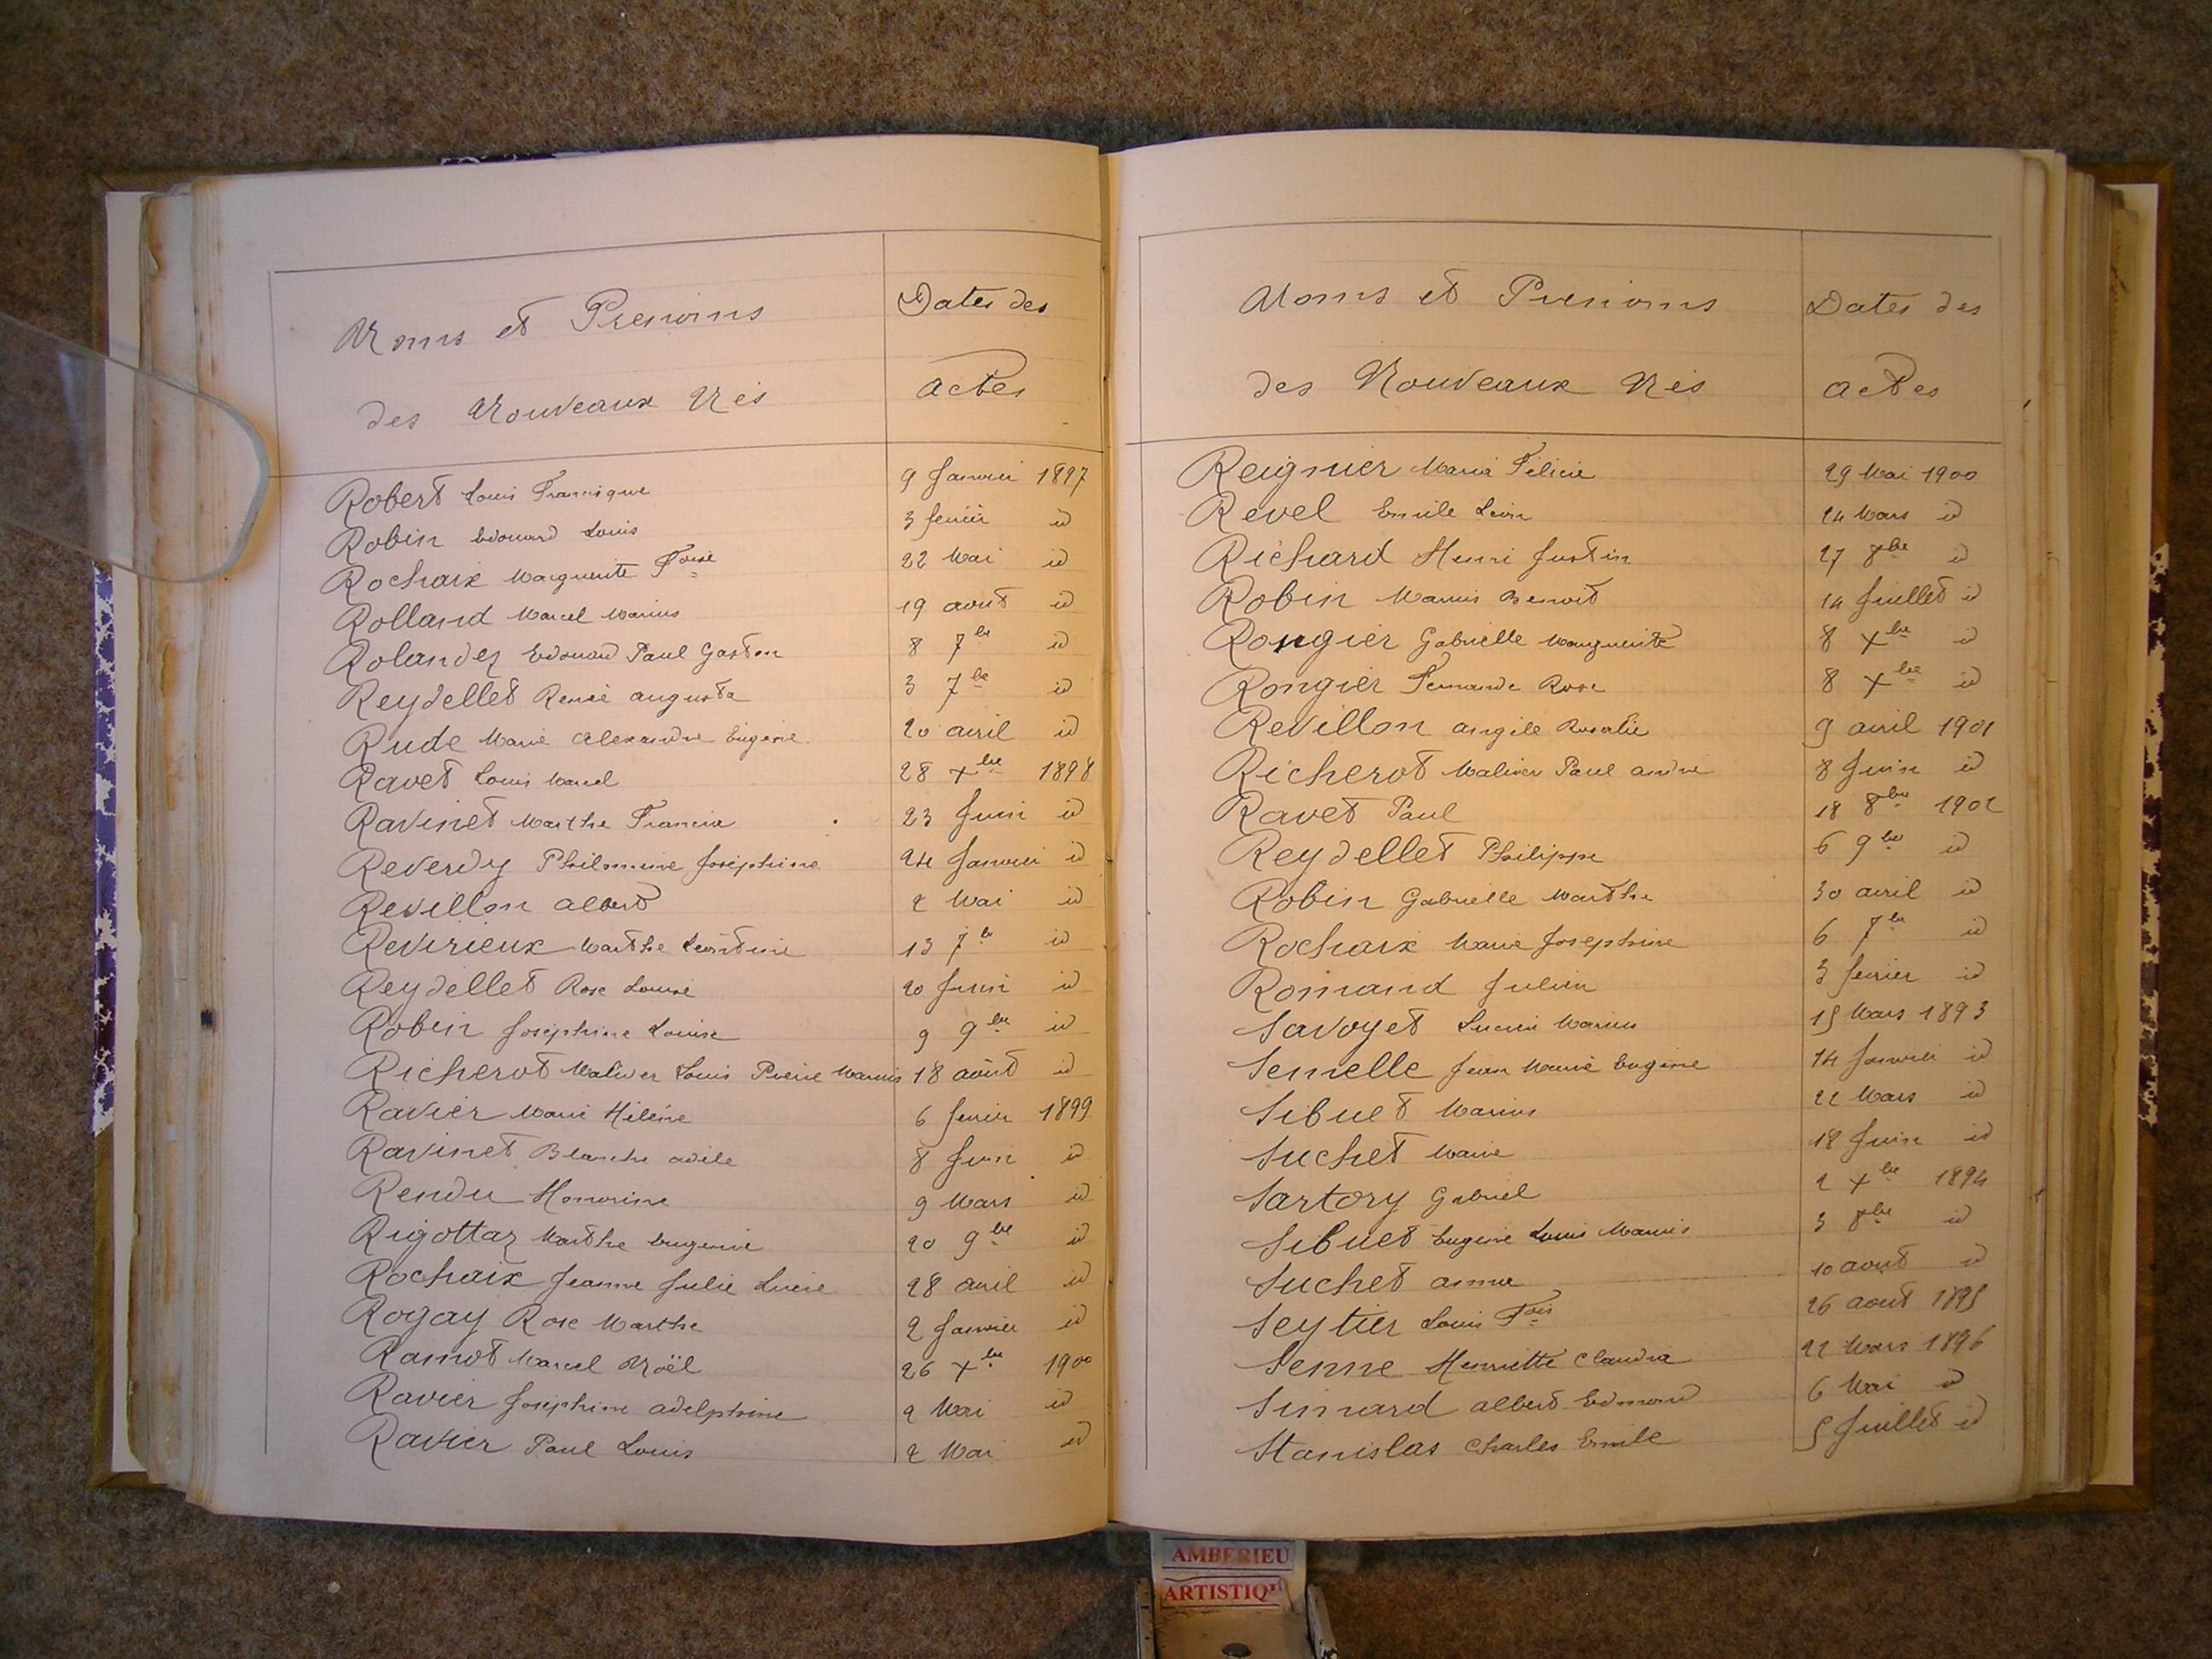 Noms et Prenoms
Dates des
des Nouveaux Nés
actes
Robert Louis Francisque 9 Janvier 1897
Robin Edouard Louis 3 fevrier id
Rochaix Marguerite Foise 22 Mai id
Rolland Marcel Marius 19 aout id
Rolandez Edouard Paul Gaston 8 7bre id
Reydellet Renée augusta 3 7bre id
Rude Marie Alexandre Eugène 20 avril id
Ravet Louis Marcel 28 xbre 1898
Ravinet Marthe Francia 23 Juin id
Reverdy Philomène Joséphine 24 Janvier id
Revillon albert 2 Mai id
Revirieux Marthe Léontine 13 7bre id
Reydellet Rose Louise 20 Juin id
Robin Joséphine Louise 9 9bre id
Richerot Maliver Louis Pierre Marius 18 août id
Ravier Marie Hélène 6 fevrier 1899
Ravinet Blanche adèle 8 Juin id
Rendu Honorine 9 Mars id
Rigottaz Marthe Eugénie 20 9bre id
Rochaix Jeanne Julie Lucie 28 avril id
Rogay Rose Marthe 2 Janvier id
Ramot Marcel Noël 26 xbre 1900
Ravier Joséphine adelphine 2 Mai id
Ravier Paul Louis 2 Mai id
Noms et Prenoms
Dates des
des Nouveaux Nés
actes
Reignier Maria Félicie 29 Mai 1900
Revel Emile Léon 14 Mars id
Richard Henri Justin 27 8bre id
Robin Marius Benoit 14 Juillet id
Rongier Gabrielle Marguerite 8 xbre id
Rongier Fernande Rose 8 xbre id
Revillon angèle Rosalie 9 avril 1901
Richerot Maliver Paul andré 8 Juin id
Ravet Paul 18 8bre 1902
Reydellet Philippe 6 9bre id
Robin Gabrielle Marthe 30 avril id
Rochaix Marie Josephine 6 7bre id
Romand Julien 3 fevrier id
Savoyet Lucien Marius 15 Mars 1893
Semelle Jean Marie Eugène 14 Janvier id
Sibuet Marius 22 Mars id
Suchet Marie 18 Juin id
Sartory Gabriel 2 xbre 1894
Sibuet Eugène Louis Marius 3 8bre id
Suchet anna 10 aout id
Seytier Louis Fois 26 aout 1895
Senne Henriette Claudia 22 Mars 1896
Simard albert Edmond 6 Mai id
Stanislas Charles Emile 5 Juillet id
AMBERIEU
ARTISTIQ